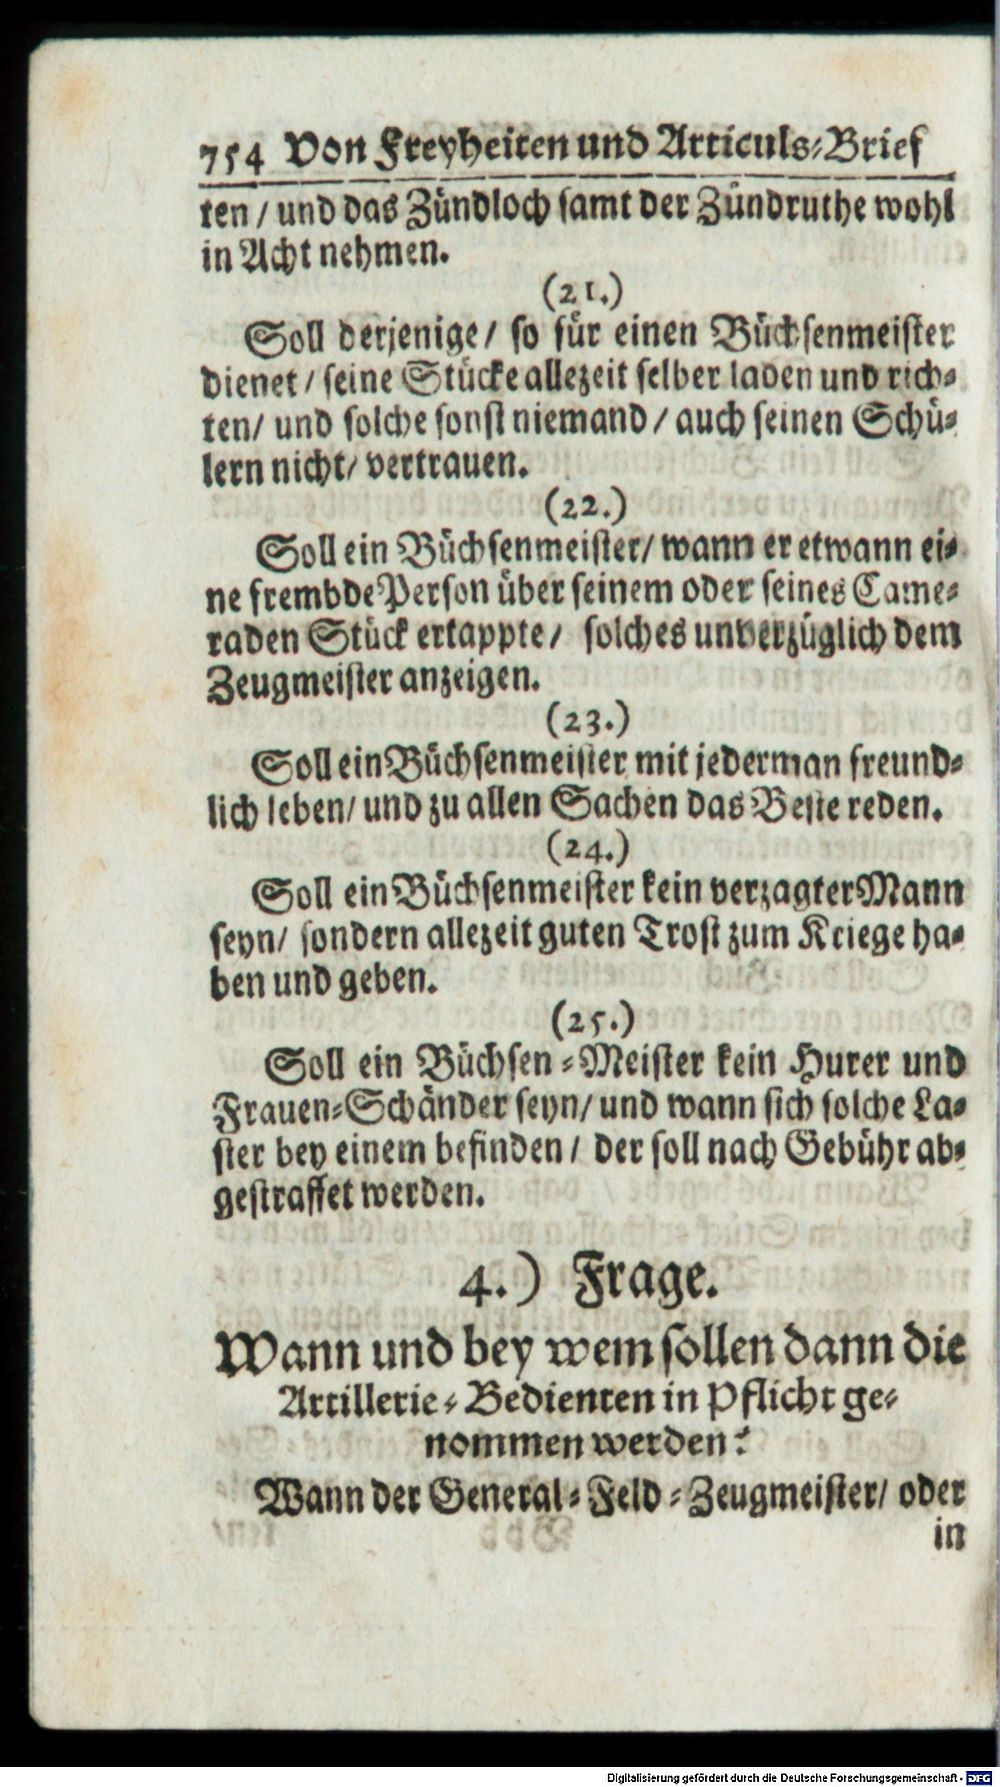 754 Von Freyheiten und Articuls-Brief
ten / und das Zündloch samt der Zündruthe wohl
in Acht nehmen.
(21.)
Soll derjenige / so für einen Büchsenmeister
dienet / seine Stücke allezeit selber laden und rich-
ten / und solche sonst niemand / auch seinen Schü-
lern nicht / vertrauen.
(22.)
Soll ein Büchsenmeister / wann er etwann ei-
ne frembde Person über seinem oder seines Came-
raden Stück ertappte / solches unverzüglich dem
Zeugmeister anzeigen.
(23.)
Soll ein Büchsenmeister mit jederman freund-
lich leben / und zu allen Sachen das Beste reden.
(24.)
Soll ein Büchsenmeister kein verzagter Mann
seyn / sondern allezeit guten Trost zum Kriege ha-
ben und geben.
(25.)
Soll ein Büchsen-Meister kein Hurer und
Frauen-Schänder seyn / und wann sich solche La-
ster bey einem befinden / der soll nach Gebühr ab-
gestraffet werden.
4.) Frage.
Wann und bey wem sollen dann die
Artillerie-Bedienten in Pflicht ge-
nommen werden?
Wann der General-Feld-Zeugmeister / oder
in
Digitalisierung gefördert durch die Deutsche Forschungsgemeinschaft - DFG